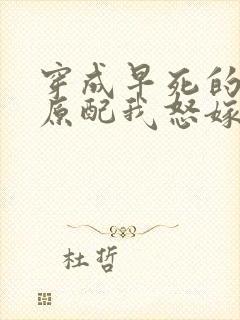 穿成早死的
原配我怒嫁
杜哲